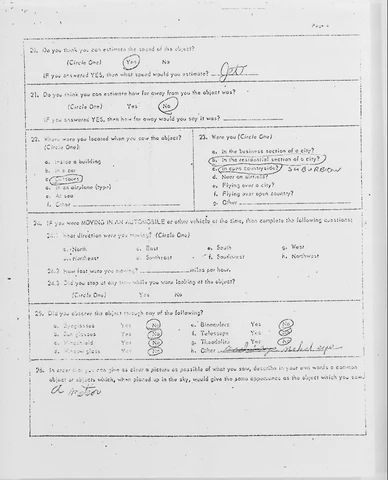 Page
20. Do you think you can estimate the speed of the object?
(Circle One) Yes No
IF you answered YES, then what speed would you estimate?
21. Do you think you can estimate how far away from you the object was?
(Circle One) Yes No
IF you answered YES, then how far away would you say it was?
22. Where were you located when you saw the object?
(Circle One):
a. Inside a building
b. In a car
c. Outdoors
d. In an airplane (type)
e. At sea
f. Other
23. Were you (Circle One)
a. In the business section of a city?
b. In the residential section of a city?
c. In open countryside? SUBURBAN
d. Near an airfield?
e. Flying over a city?
f. Flying over open country?
g. Other
24. IF you were MOVING IN AN AUTOMOBILE or other vehicle at the time, then complete the following questions:
24.1 What direction were you moving? (Circle One)
a. North c. East e. South g. West
b. Northeast d. Southeast f. Southwest h. Northwest
24.2 How fast were you moving? miles per hour.
24.3 Did you stop at any time while you were looking at the object?
(Circle One) Yes No
25. Did you observe the object through any of the following?
a. Eyeglasses Yes No e. Binoculars Yes No
b. Sun glasses Yes No f. Telescope Yes No
c. Windshield Yes No g. Theodolite Yes No
d. Window glass Yes No h. Other naked eye
26. In order that you can give as clear a picture as possible of what you saw, describe in your own words a common
object or objects which, when placed up in the sky, would give the same appearance as the object which you saw.
a meteor